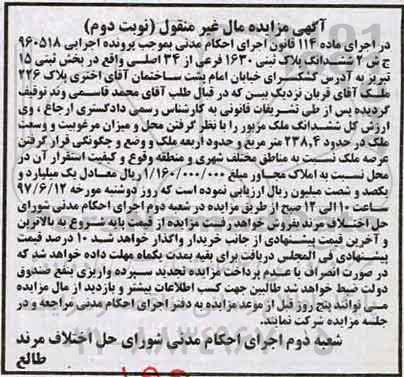 آگهی مزایده مال غیر منقول (نوبت دوم)
در اجرای ماده ۱۱۴ قانون اجرای احکام مدنی بموجب پرونده اجرایی ۹۶۰۵۱۸
ج ش ۲ ششدانگ پلاک ثبتی ۱۶۳۰ فرعی از ۳۴ اصلی واقع در بخش ثبتی ۱۵
تبریز به آدرس کشکسرای خیابان امام پشت ساختمان آقای اختری پلاک ۲۲۶
ملک آقای قربان نزدیک بین که در قبال طلب آقای محمد قاسمی وند توقیف
گردیده پس از طی تشریفات قانونی به کارشناس رسمی دادگستری ارجاع ، وی
ارزش کل ششدانگ ملک مزبور را با نظر گرفتن محل و میزان مرغوبیت و وسعت
ملک در حدود ۲۳۸٫۴ متر مربع و حدود اربعه ملک و وضع و چگونگی قرار گرفتن
عرصه ملک نسبت به مناطق مختلف شهری و منطقه وقوع و کیفیت استقرار آن در
محل نسبت به املاک مجاور مبلغ ۱/۱۶۰/۰۰۰/۰۰۰ ریال معادل یک میلیارد و
یکصد و شصت میلیون ریال ارزیابی نموده است که روز دوشنبه مورخه ۹۷/۶/۱۲
ساعت ۱۰ الی ۱۲ صبح از طریق مزایده در شعبه دوم اجرای احکام مدنی شورای
حل اختلاف مرند بفروش خواهد رفت مزایده از قیمت پایه شروع به بالاترین
و آخرین قیمت پیشنهادی از جانب خریدار واگذار خواهد شد ۱۰ درصد قیمت
پیشنهادی فی المجلس دریافت برای بقیه بمدت یکماه مهلت داده خواهد شد که
در صورت انصراف یا عدم پرداخت مزایده تجدید سپرده واریزی بنفع صندوق
دولت ضبط خواهد شد طالبین جهت کسب اطلاعات بیشتر و بازدید از مال مزایده
می توانند پنج روز قبل از موعد مزایده به دفتر اجرای احکام مدنی مراجعه و در
جلسه مزایده شرکت نمایند.
شعبه دوم اجرای احکام مدنی شورای حل اختلاف مرند
طالع